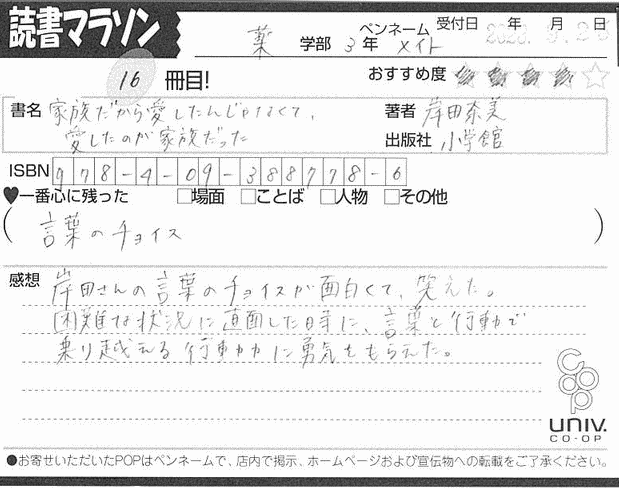 読書マラソン
薬 学部 3年 ペンネーム メイト 受付日 2023年 9月 25日
16 冊目!
おすすめ度 ★★★★☆
書名 家族だから愛したんじゃなくて、
愛したのが家族だった
著者 岸田奈美
出版社 小学館
ISBN 978-4-09-388778-6
♥一番心に残った □場面 □ことば □人物 □その他
(言葉のチョイス)
感想 岸田さんの言葉のチョイスが面白くて、笑えた。
困難な状況に直面した時に、言葉と行動で
乗り越える行動力に勇気をもらえた。
coop
UNIV.
CO-OP
●お寄せいただいたPOPはペンネームで、店内で掲示、ホームページおよび宣伝物への転載をご了承ください。